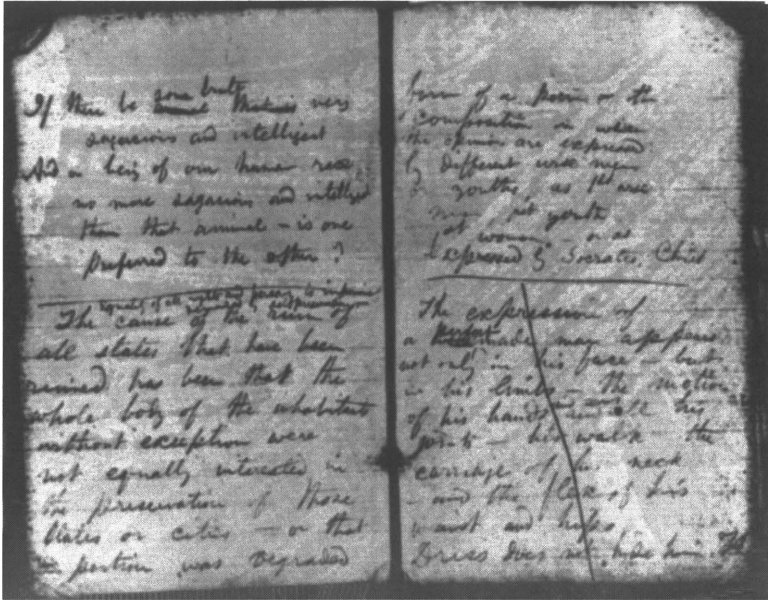 some brute
If there be animal that is very
sagacious and intelligent
And a being of our human race
no more sagacious and intelligent
than that animal – is one
preferred to the other?
The cause of the ruin of
all states that have been
ruined has been that the
whole body of the inhabitants
without exception were
not equally interested in
the preservation of those
States or cities – or that
portion was degraded
form of a poem or the
composition in
the opinions are expressed
by different wise men
or youths, as
youth
women – or as
expressed by Socrates, Christ
The expression of
a perfect made man appears
not only in his face – but
in his limbs – the motion
of his hands and all his
joints – his walk – the
carriage of his neck
– and the flex of his
waist and hips
Dress does not hide him. The